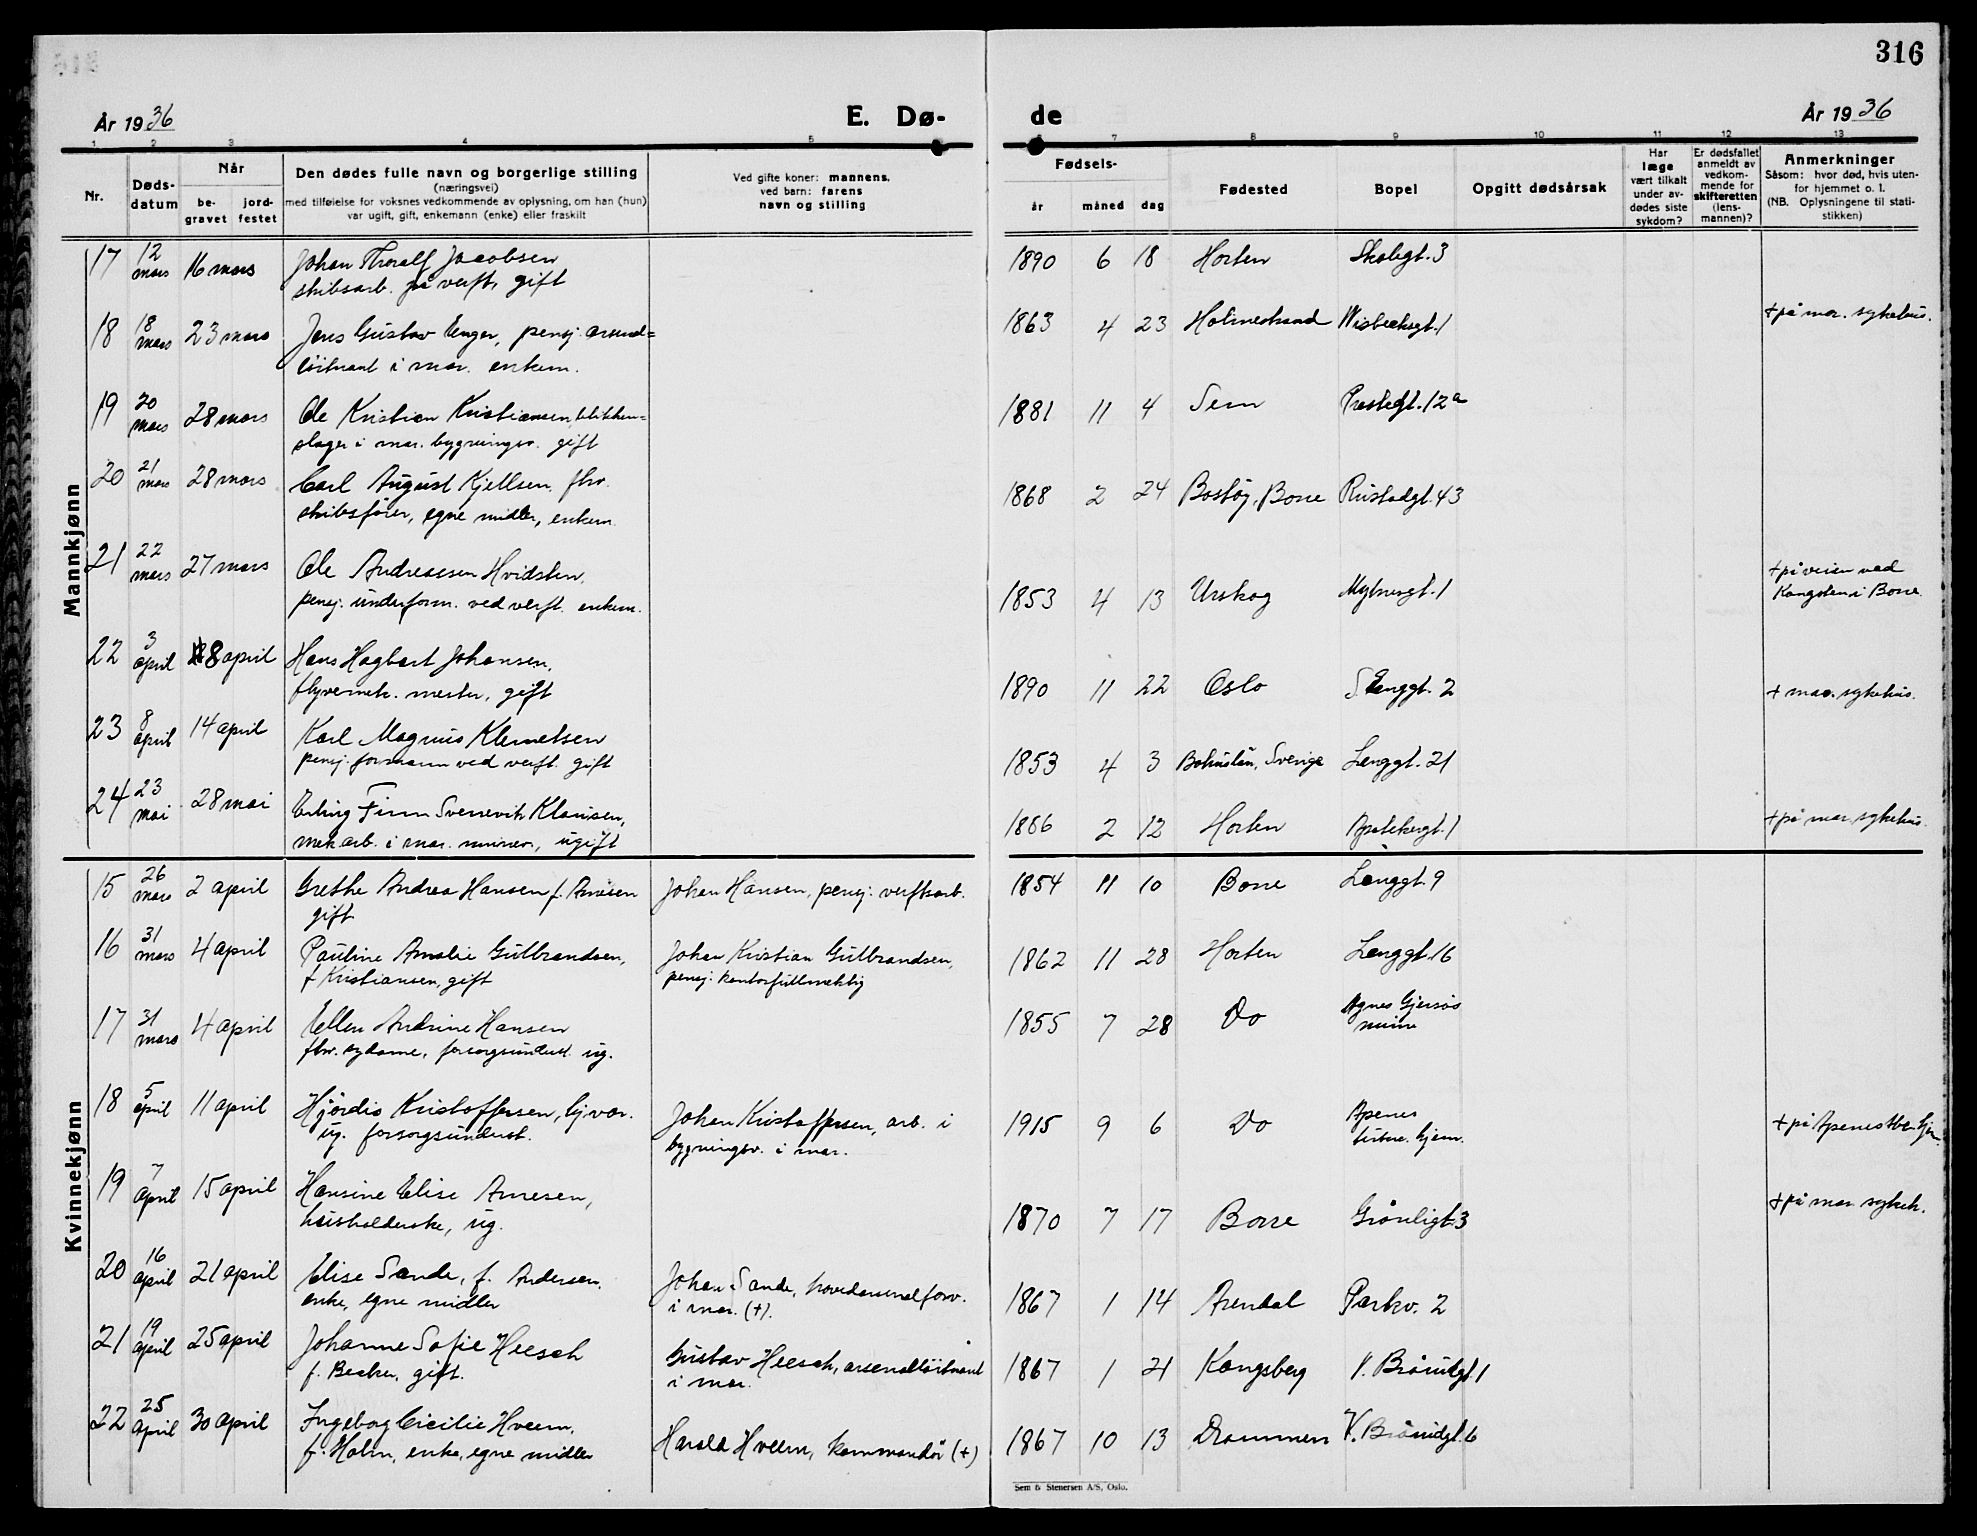 316
År 1936 E. Dø- de År 1936
1 2 3 4 5 6 7 8 9 10 11 12 13
Nr.
Døds-
datum
Når
be-
gravet
jord-
festet
Den dødes fulle navn og borgerlige stilling
(næringsvei)
med tilføielse for voksnes vedkommende av oplysning, om han (hun)
var ugift, gift, enkemann (enke) eller fraskilt
Ved gifte koner: mannens,
ved barn: farens
navn og stilling
Fødsels-
år måned dag
Fødested
Bopel
Opgitt dødsårsak
Har
læge
vært tilkalt
under av-
dødes siste
sykdom?
Er dødsfallet
anmeldt av
vedkom-
mende for
skifteretten
(lens-
mannen)?
Anmerkninger
Såsom: hvor død, hvis uten-
for hjemmet o. l.
(NB. Oplysningene til stati-
stikken)
Mannkjønn
17 12 mars 16 mars Johan Thoralf Jacobsen 1890 6 18 Horten 3
skibsarb. på verft, gift
18 18 mars 23 mars Jens Gustav Enger, pensj. 1863 4 23 Holmestrand Wisbechsgt. 1 + på mar. sykehus.
løitnant i mar. enkem.
19 20 mars 28 mars Ole Kristian Kristiansen, blikken= 1881 11 4 Sem Prestegt. 12a
slager i mar. bygningsv. gift
20 21 mars 28 mars Carl August Kjellsen, fhv. 1868 2 24 Borre Rustadgt. 43
skibsfører, egne midler, enkem.
21 22 mars 27 mars Ole Andreassen Hvidsten, 1853 4 13 Urskog 1 + på veien ved
pensj. underform. ved verft. enkem. i Borre
22 3 april 8 april Hans Hagbart Johansen, 1890 11 22 Oslo 2 + mar. sykehus.
flyvemek. mester, gift
23 8 april 14 april Karl Magnus Klemetsen 1853 4 3 Bohuslän, Sverige Langgt. 21
pensj. formann ved verft. gift
24 23 mai 28 mai Erling Finn Klausen, 1886 2 12 Horten Apotekergt. 1 + på mar. sykehus.
mek. arb. i mar. minev., ugift
Kvinnekjønn
15 26 mars 2 april Grethe Andrea Hansen f. Johan Hansen, pensj. verftsarb. 1854 11 10 Borre Langgt. 9
gift
16 31 mars 4 april Pauline Amalie Gulbrandsen, Johan Kristian Gulbrandsen, 1862 11 28 Horten Langgt. 16
f. Kristiansen, gift pensj. kontorfullmektig
17 31 mars 4 april Ellen Andrine Hansen 1855 7 28 Do Agnes Gjersøs
fhv. sydame, forsorgsunderst. ug. minne
18 5 april 11 april Hjördis Kristoffersen, hjvær. Johan Kristoffersen, arb. i 1915 9 6 Do Apenes
ug. forsorgsunderst. bygningsv. i mar. hjem. + på Apenes
19 7 april 15 april Hansine Elise Arnesen, 1870 7 17 Borre Grønligt. 3 + på mar. sykeh.
husholderske, ug.
20 16 april 21 april Elise Sande, f. Andersen. Johan Sande, hovedarsenalforv. 1867 1 14 Arendal Parkv. 2
enke, egne midler i mar. (+).
21 19 april 25 april Johanne Sofie Heesch Gustav Heesch, arsenalløitnant 1867 1 21 Kongsberg V. Bråtudgt. 1
f. Becker, gift. i mar.
22 25 april 30 april Ingeborg Cicilie Hveem, Harald Hveem, kommandør (+) 1867 10 13 Drammen 6
f. Holm, enke, egne midler
Sem & Stenersen A/S, Oslo.